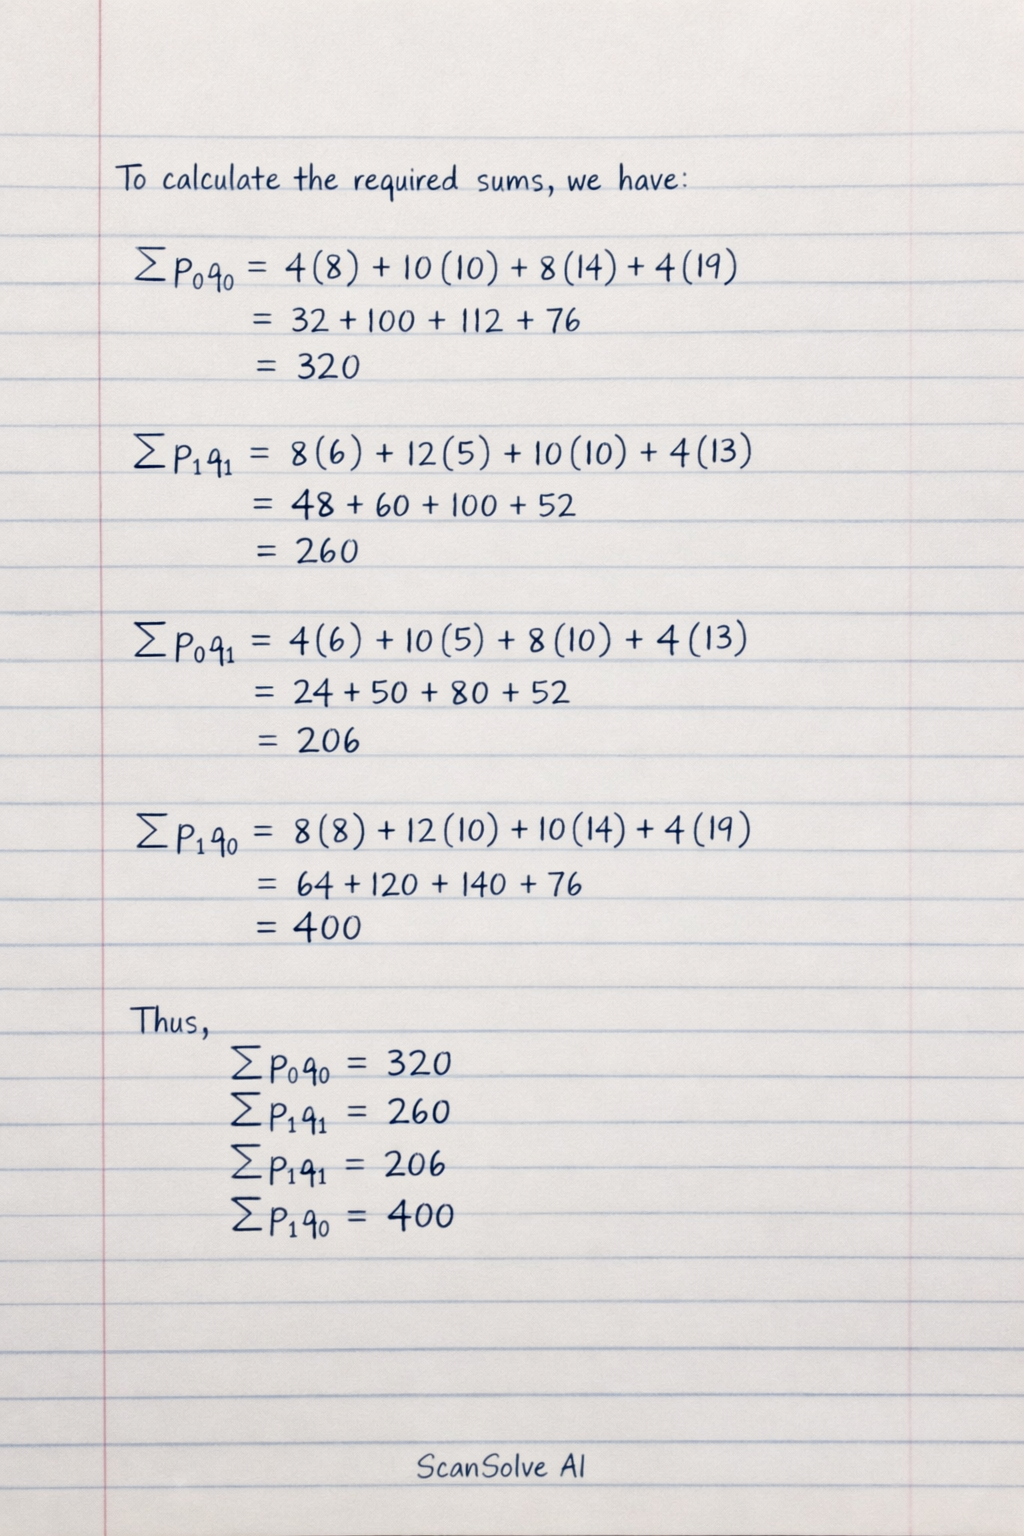 To calculate the required sums, we have:
∑p₀q₀ = 4(8) + 10(10) + 8(14) + 4(19)
= 32 + 100 + 112 + 76
= 320
∑p₁q₁ = 8(6) + 12(5) + 10(10) + 4(13)
= 48 + 60 + 100 + 52
= 260
∑p₀q₁ = 4(6) + 10(5) + 8(10) + 4(13)
= 24 + 50 + 80 + 52
= 206
∑p₁q₀ = 8(8) + 12(10) + 10(14) + 4(19)
= 64 + 120 + 140 + 76
= 400
Thus,
∑p₀q₀ = 320
∑p₁q₁ = 260
∑p₁q₁ = 206
∑p₁q₀ = 400
ScanSolve AI